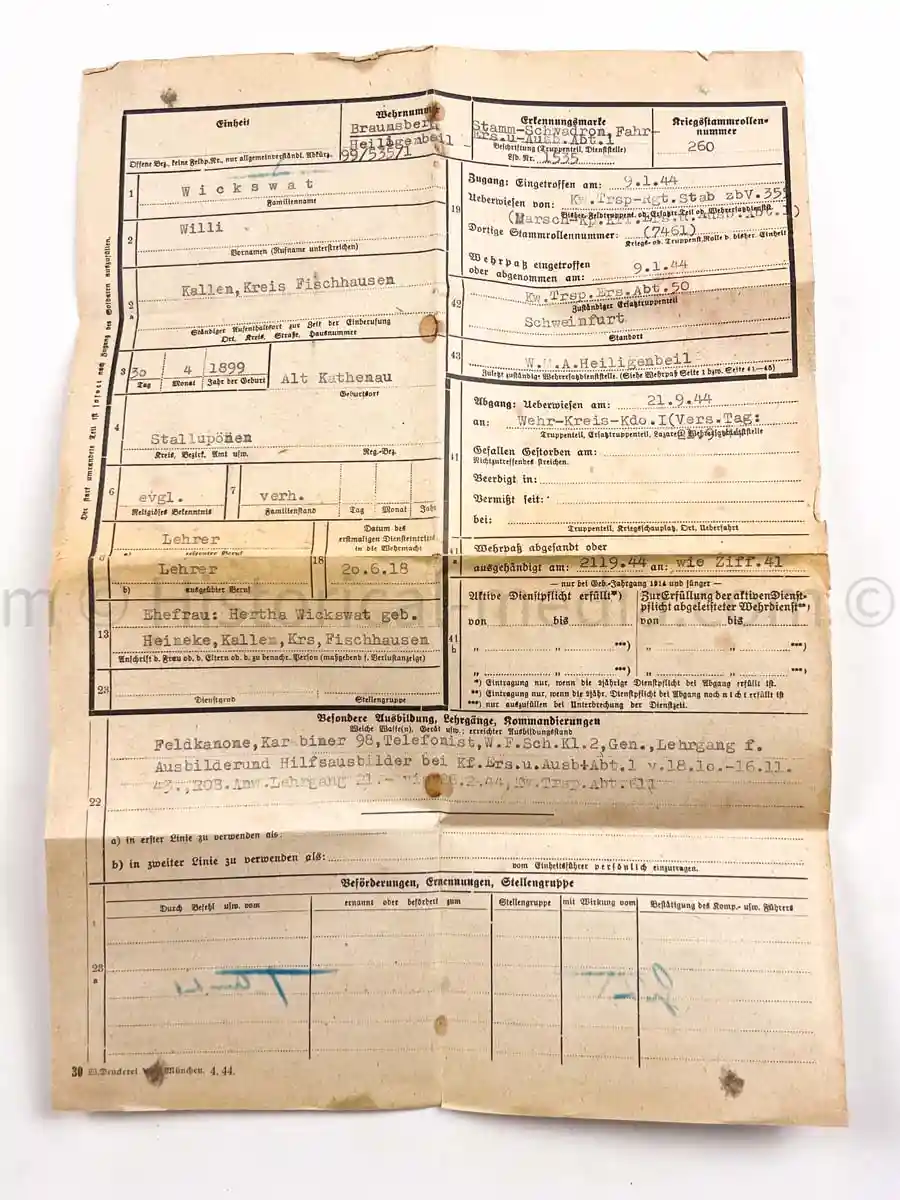 Einheit
Offene Bez. keine Feldp.Nr., nur allgemeinverständl. Abkürz.
Wehrnummer
Braunsberg
Heiligenbeil
99/535/1
Erkennungsmarke
Stamm-Schwadron, Fahr-
Ers.u-Ausb.Abt.1
Beschriftung (Truppenteil, Dienststelle)
Lfd. Nr. 1535
Kriegsstammrollen-
nummer
260
Der stark umrandete Teil ist sofort nach Zugang des Soldaten auszufüllen.
1 Wickswat
Familienname
2 Willi
Vornamen (Rufname unterstreichen)
2a Kallen, Kreis Fischhausen
Ständiger Aufenthaltsort zur Zeit der Einberufung
Ort, Kreis, Straße, Hausnummer
3 30 4 1899
Tag Monat Jahr der Geburt
Alt Kathenau
Geburtsort
4 Stallupönen
Kreis, Bezirk, Amt usw. Reg.-Bez.
6 evgl.
Religiöses Bekenntnis
7 verh.
Familienstand
Tag Monat Jahr
Lehrer
a) erlernter Beruf
Lehrer
b) ausgeübter Beruf
18 Datum des
erstmaligen Diensteintritts
in die Wehrmacht
20.6.18
13 Ehefrau: Hertha Wickswat geb.
Heineke, Kallen, Krs, Fischhausen
Anschrift d. Frau od. d. Eltern od. d. zu benachr. Person (maßgebend f. Verlustanzeige)
23
Dienstgrad Stellengruppe
19 Zugang: Eingetroffen am: 9.1.44
Ueberwiesen von: Kw.Trsp-Rgt.Stab zbV.355
Bisher. Feldtruppent. od. Ersatz-Teil od. Wehrersatzdienstst.
Dortige Stammrollennummer: (7461)
Kriegs- od. Truppenst.Rolle d. bisher. Einheit
Wehrpaß eingetroffen
oder abgenommen am: 9.1.44
42 Kw.Trsp.Ers.Abt.50
Zuständiger Ersatztruppenteil
Schweinfurt
Standort
43 W.M.A.Heiligenbeil
Zuletzt zuständige Wehrersatzdienststelle. (Siehe Wehrpaß Seite 1 bzw. Seite 41–45)
41 Abgang: Ueberwiesen am: 21.9.44
an: Wehr-Kreis-Kdo.I(Vers.Tag:
Truppenteil, Ersatztruppenteil, Lazarett, Wehrersatzdienststelle
Gefallen Gestorben am:
Nichtzutreffendes streichen.
Beerdigt in:
Vermißt seit:
bei:
Truppenteil, Kriegsschauplatz, Ort, Ueberfahrt
41a Wehrpaß abgesandt oder
ausgehändigt am: 2119.44 an: wie Ziff.41
— nur bei Geb.-Jahrgang 1914 und jünger —
41b Aktive Dienstpflicht erfüllt*)
von bis
" " ***)
" " ***)
Zur Erfüllung der aktiven Dienst-
pflicht abgeleisteter Wehrdienst**)
von bis
" " ***)
" " ***)
*) Eintragung nur, wenn die 2jährige Dienstpflicht bei Abgang erfüllt ist.
**) Eintragung nur, wenn die 2jähr. Dienstpflicht bei Abgang noch nicht erfüllt ist
***) nur auszufüllen bei Unterbrechung der Dienstzeit.
Besondere Ausbildung, Lehrgänge, Kommandierungen
Welche Waffe(n), Gerät usw.; erreichter Ausbildungsstand
22 Feldkanone, Karabiner 98, Telefonist, W.F.Sch.Kl.2, Gen., Lehrgang f.
Ausbilderund Hilfsausbilder bei Kf.Ers.u.Ausb+Abt.1 v.18.10.-16.11.
43., ROB.Anw.Lehrgang 21.- .2.44, Kw.Trsp.Abt.611
a) in erster Linie zu verwenden als:
b) in zweiter Linie zu verwenden als:
vom Einheitsführer persönlich einzutragen.
Beförderungen, Ernennungen, Stellengruppe
Durch Befehl usw. vom ernannt oder befördert zum Stellengruppe mit Wirkung vom Bestätigung des Komp.- usw. Führers
23a
30 München. 4. 44.